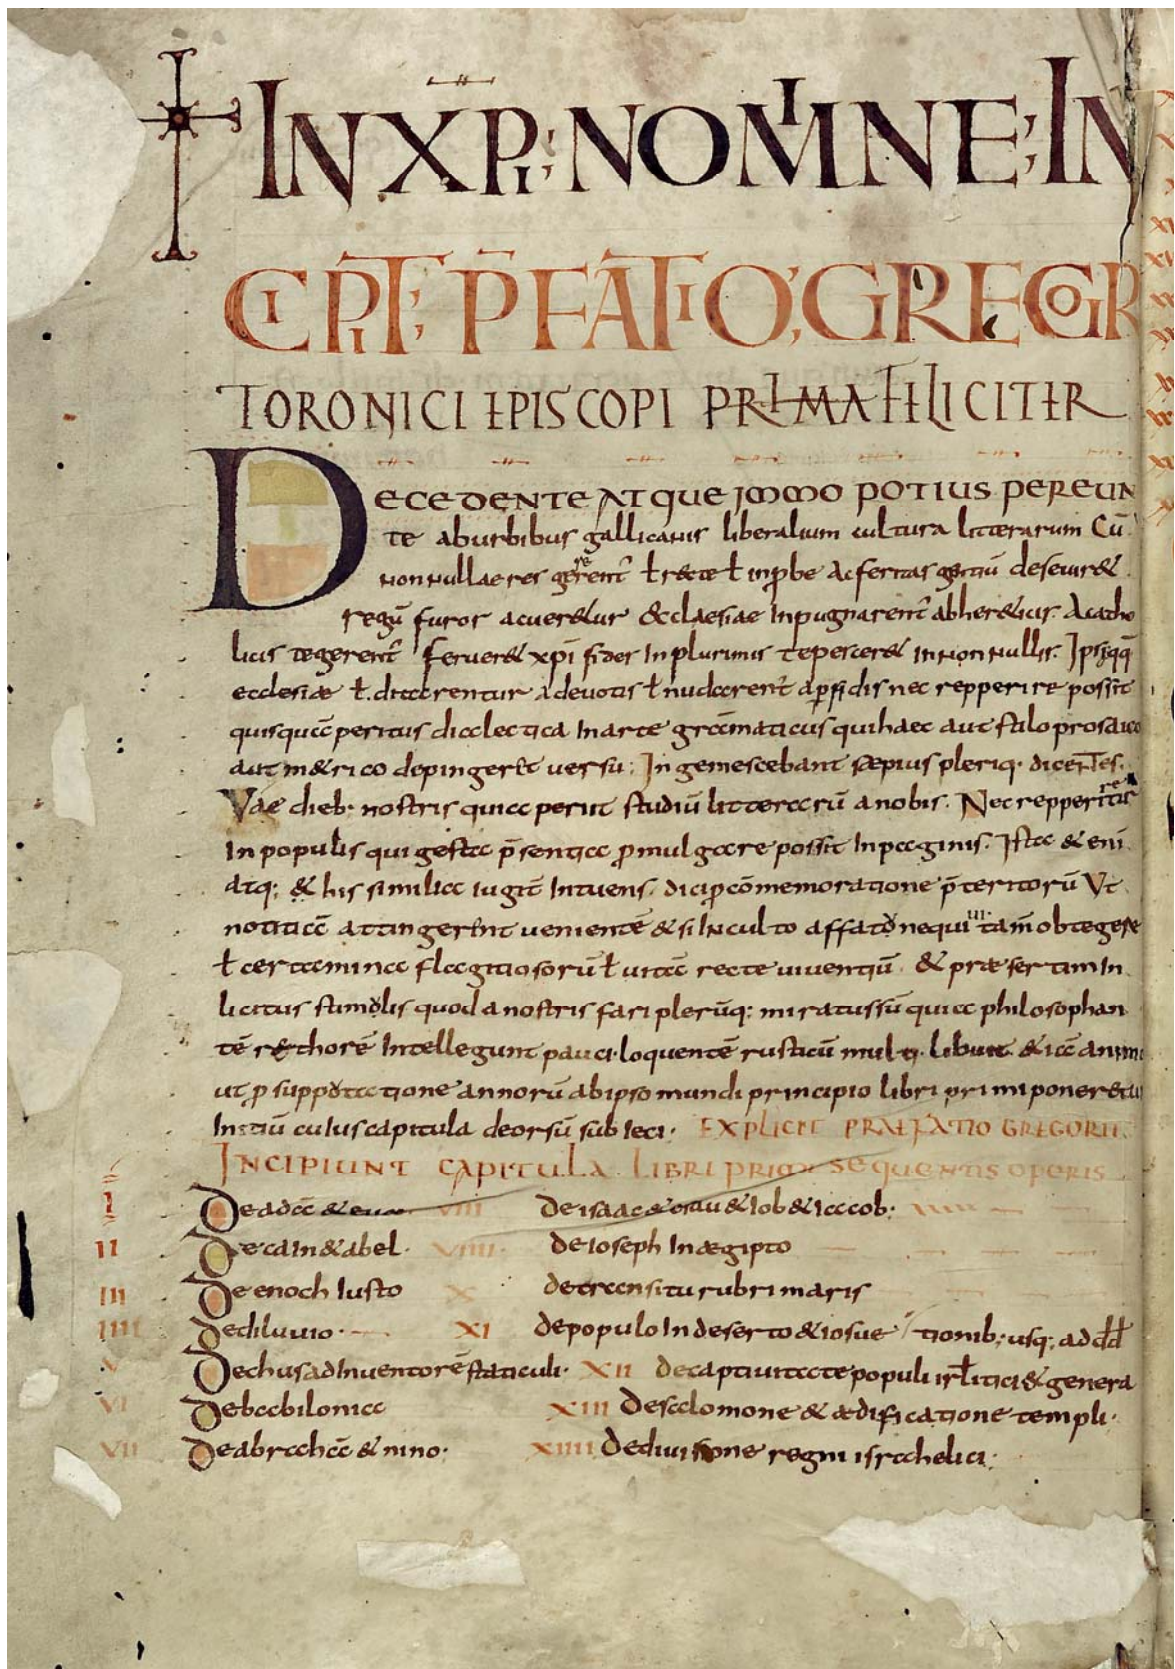 IN XP̄I; NOMINE; IN
CIPIT; P̄FATIO; GREGORI
TORONICI EPISCOPI PRIMA FELICITER
DECEDENTE ATQUE immo POTIUS PEREUN
TE aburbibus gallicanis liberalium cultura litterarum Cū
nonnullae res gererent̄ ł recte ł inp̱be Ac feritas gentiū deseuir&
regū furor acuer&ur &cclaesiae Inpugnarent̄ abher&icis. Acatho
licis tegerent̄ feruer& xp̄i fides Inplurimis tepescer& Innonnullis. Ipsęqq̄
ecclesiæ ł. ditarentur adeuotis ł nudarent̄ ap̱fidis nec repperire possit
quisquā peritus dialectica Inarte grāmaticus quihaec aut stilo prosaico
aut m&rico depinger&t versu; Ingemescebant sæpius pleriq. dicentes.
Vae dieb· nostris quia periit studiū litterarū anobis. Nec repperitur
Inpopulis qui gesta p̄sentia p̱mulgare possit Inpaginis. Ista & eni
atq; & his similia iugit̄ Intuens. dici p̱ cōmemoratione p̄teritorū Vt
notitiā attingerent uenientē & si Inculto affatu nequiui tam̄ obtegere
ł certamina flagitiosorū ł uitā recte uiuentiū & præsertim In
licitus stimulis quod anostris fari plerūq; miratussū quia philosophan
tē r&thorē Intellegunt pauci· loquentē rusticū multi. libuit & iā animo
ut p̱ supputatione annorū abipso mundi principio libri primi poner&ur
Initiū cuius capitula deorsū subieci· EXPLICIT PRAEFATIO GREGORII.
INCIPIUNT CAPITULA LIBRI PRIMI SEQUENTIS OPERIS
I De adā & eua VIII de isaac & esau & Iob & Iacob:
II De cain & abel· VIIII de Ioseph In ægipto
III De enoch Iusto X detransitu rubri maris
IIII De diluuio· XI depopulo Indeserto & iosue tionib; usq; ad dd̄
V De chus adInuentorē staticuli· XII decaptiuitate populi isrł itici & genera
VI De babilonia XIII desalomone & ædificatione templi·
VII De abrahā & nino· XIIII dediuisione regni israhelici·